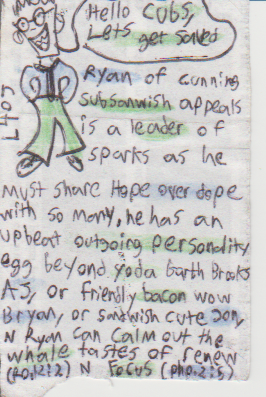 Hello Cubs,
Lets get Solved
L407
Ryan of cunning
subsanwish appeals
is a leader of
sparks as he
must share Hope over dope
with so many, he has an
upbeat outgoing personality
egg beyond yoda Garth Brooks
AJ, or friendly bacon wow
Bryan, or sandwish cute Jon,
N Ryan can calm out the
whale tastes of renew
(Ro,12:2) N Focus (pho.2:5)